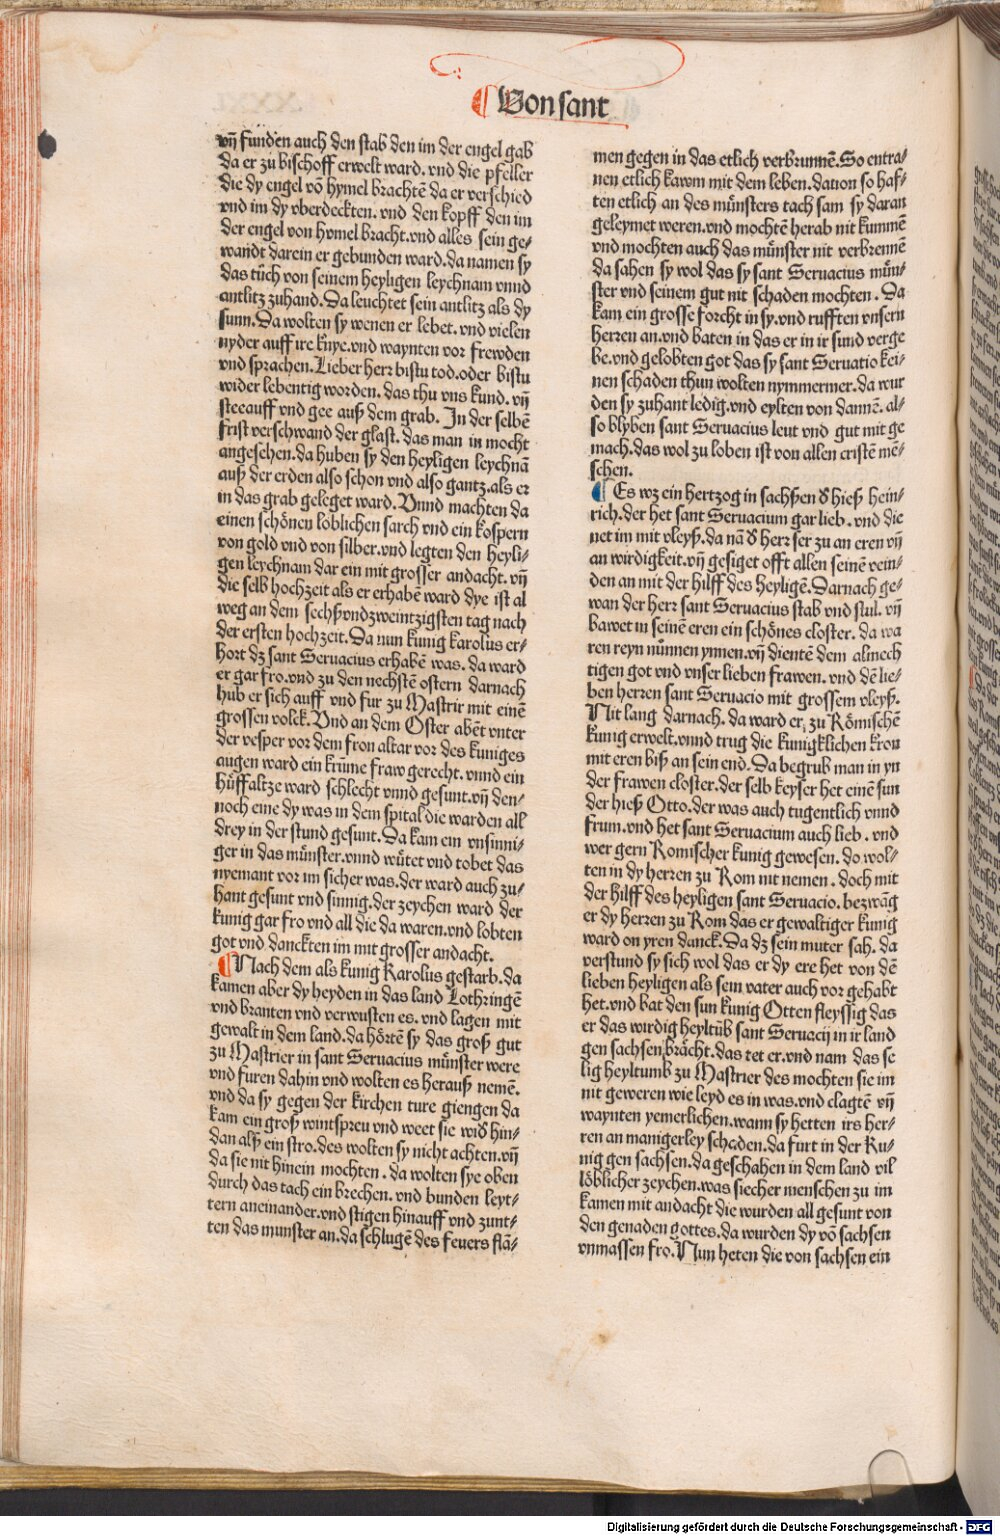 Von sant
vñ funden auch den stab den im der engel gab
da er zu bischoff erwelt ward. vnd die pfeller
die dy engel võ hymel brachtẽ da er verschied
vnd im dy vberdeckten. vnd den kopff den im
der engel von hymel bracht. vnd alles sein ge⸗
wandt darein er gebunden ward. da namen sy
das tůch von seinem heyligen leychnam vnnd
antlitz zuhand. Da leuchtet sein antlitz als dy
sunn. Da wolten sy wenen er lebet. vnd vielen
nyder auff ire knye. vnd waynten vor frewden
vnd sprachen. Lieber herr bistu tod. oder bistu
wider lebentig worden. das thu vns kund. vñ
steeauff vnd gee auß dem grab. In der selbẽ
frist verschwand der glast. das man in mocht
angesehen. da huben sy den heyligen leychnã
auß der erden also schon vnd also gantz. als er
in das grab geleget ward. Vnnd machten da
einen schönen loblichen sarch vnd ein kospern
von gold vnd von silber. vnd legten den heyli⸗
gen leychnam dar ein mit grosser andacht. vñ
die selb hochzeit als er erhabẽ ward dye ist al
weg an dem sechßvndzweintzigsten tag nach
der ersten hochzeit. Da nun kunig karolus er⸗
hort dz sant Seruacius erhabẽ was. da ward
er gar fro. vnd zu den nechstẽ ostern darnach
hub er sich auff vnd fur zu Mastrir mit einẽ
grossen volck. Vnd an dem Oster abẽt vnter
der vesper vor dem fron altar vor des kuniges
augen ward ein krũme fraw gerecht. vnnd ein
hüffaltze ward schlecht vnnd gesunt. vñ den⸗
noch eine dy was in dem spital die warden all
drey in der stund gesunt. Da kam ein vnsinni⸗
ger in das mũnster. vnnd wůtet vnd tobet das
nyemant vor im sicher was. der ward auch zu⸗
hant gesunt vnd sinnig. der zeychen ward der
kunig gar fro vnd all die da waren. vnd lobten
got vnd danckten im mit grosser andacht.
Nach dem als kunig Karolus gestarb. da
kamen aber dy heyden in das land Lothringẽ
vnd branten vnd verwusten es. vnd lagen mit
gewalt in dem land. da hörtẽ sy das groß gut
zu Mastrier in sant Seruacius mũnster were
vnd furen dahin vnd wolten es herauß nemẽ.
vnd da sy gegen der kirchen ture giengen da
kam ein groß wintspreu vnd weet sie wid hin⸗
dan alß ein stro. des wolten sy nicht achten. vñ
da sie nit hinein mochten. da wolten sye oben
durch das tach ein brechen. vnd bunden leyt⸗
tern aneinander. vnd stigen hinauff vnd zunt⸗
ten das munster an. da schlugẽ des feuers flã⸗
men gegen in das etlich verbrunnẽ. So entra⸗
nen etlich kawm mit dem leben. dauon so haf⸗
ten etlich an des mũnsters tach sam sy daran
geleymet weren. vnd mochtẽ herab nit kummẽ
vnd mochten auch das mũnster nit verbrennẽ
da sahen sy wol das sy sant Seruacius mũn⸗
ster vnd seinem gut nit schaden mochten. Da
kam ein grosse forcht in sy. vnd rufften vnsern
herren an. vnd baten in das er in ir sund verge
be. vnd gelobten got das sy sant Seruatio kei⸗
nen schaden thun wolten nymmermer. da wur
den sy zuhant ledig. vnd eylten von dannẽ. al⸗
so blyben sant Seruacius leut vnd gut mit ge
mach. das wol zu loben ist von allen cristẽ mẽ⸗
schen.
Es wz ein hertzog in sachßen d hieß hein⸗
rich. der het sant Seruacium gar lieb. vnd die
net im mit vleyß. da nã d herr ser zu an eren vñ
an wirdigkeit. vñ gesiget offt allen seinẽ vein⸗
den an mit der hilff des heyligẽ. Darnach ge⸗
wan der herr sant Seruacius stab vnd stul. vñ
bawet in seinẽ eren ein schönes closter. da wa
ren reyn nũnnen ynnen. vñ dientẽ dem almech
tigen got vnd vnser lieben frawen. vnd dẽ lie⸗
ben herren sant Seruacio mit grossem vleyß.
Nit lang darnach. da ward er zu Römischẽ
kunig erwelt. vnnd trug die kunigklichen kron
mit eren biß an sein end. Da begrub man in yn
der frawen closter. der selb keyser het einẽ sun
der hieß Otto. der was auch tugentlich vnnd
frum. vnd het sant Seruacium auch lieb. vnd
wer gern Romischer kunig gewesen. do wol⸗
ten in dy herren zu Rom nit nemen. doch mit
der hilff des heyligen sant Seruacio. bezwãg
er dy herren zu Rom das er gewaltiger kunig
ward on yren danck. Da dz sein muter sah. da
verstund sy sich wol das er dy ere het von dẽ
lieben heyligen als sein vater auch vor gehabt
het. vnd bat den sun kunig Otten fleyssig das
er das wirdig heyltũb sant Seruacij in ir land
gen sachsen brächt. das tet er. vnd nam das se
lig heyltumb zu Mastrier des mochten sie im
nit geweren wie leyd es in was. vnd clagtẽ vñ
waynten yemerlichen. wann sy hetten irs her⸗
ren an manigerley schaden. da furt in der Ku⸗
nig gen sachsen. da geschahen in dem land vil
löblicher zeychen. was siecher menschen zu im
kamen mit andacht die wurden all gesunt von
den genaden gottes. da wurden dy võ sachsen
vnmassen fro. Nun heten die von sachsen ein
Digitalisierung gefördert durch die Deutsche Forschungsgemeinschaft - DFG